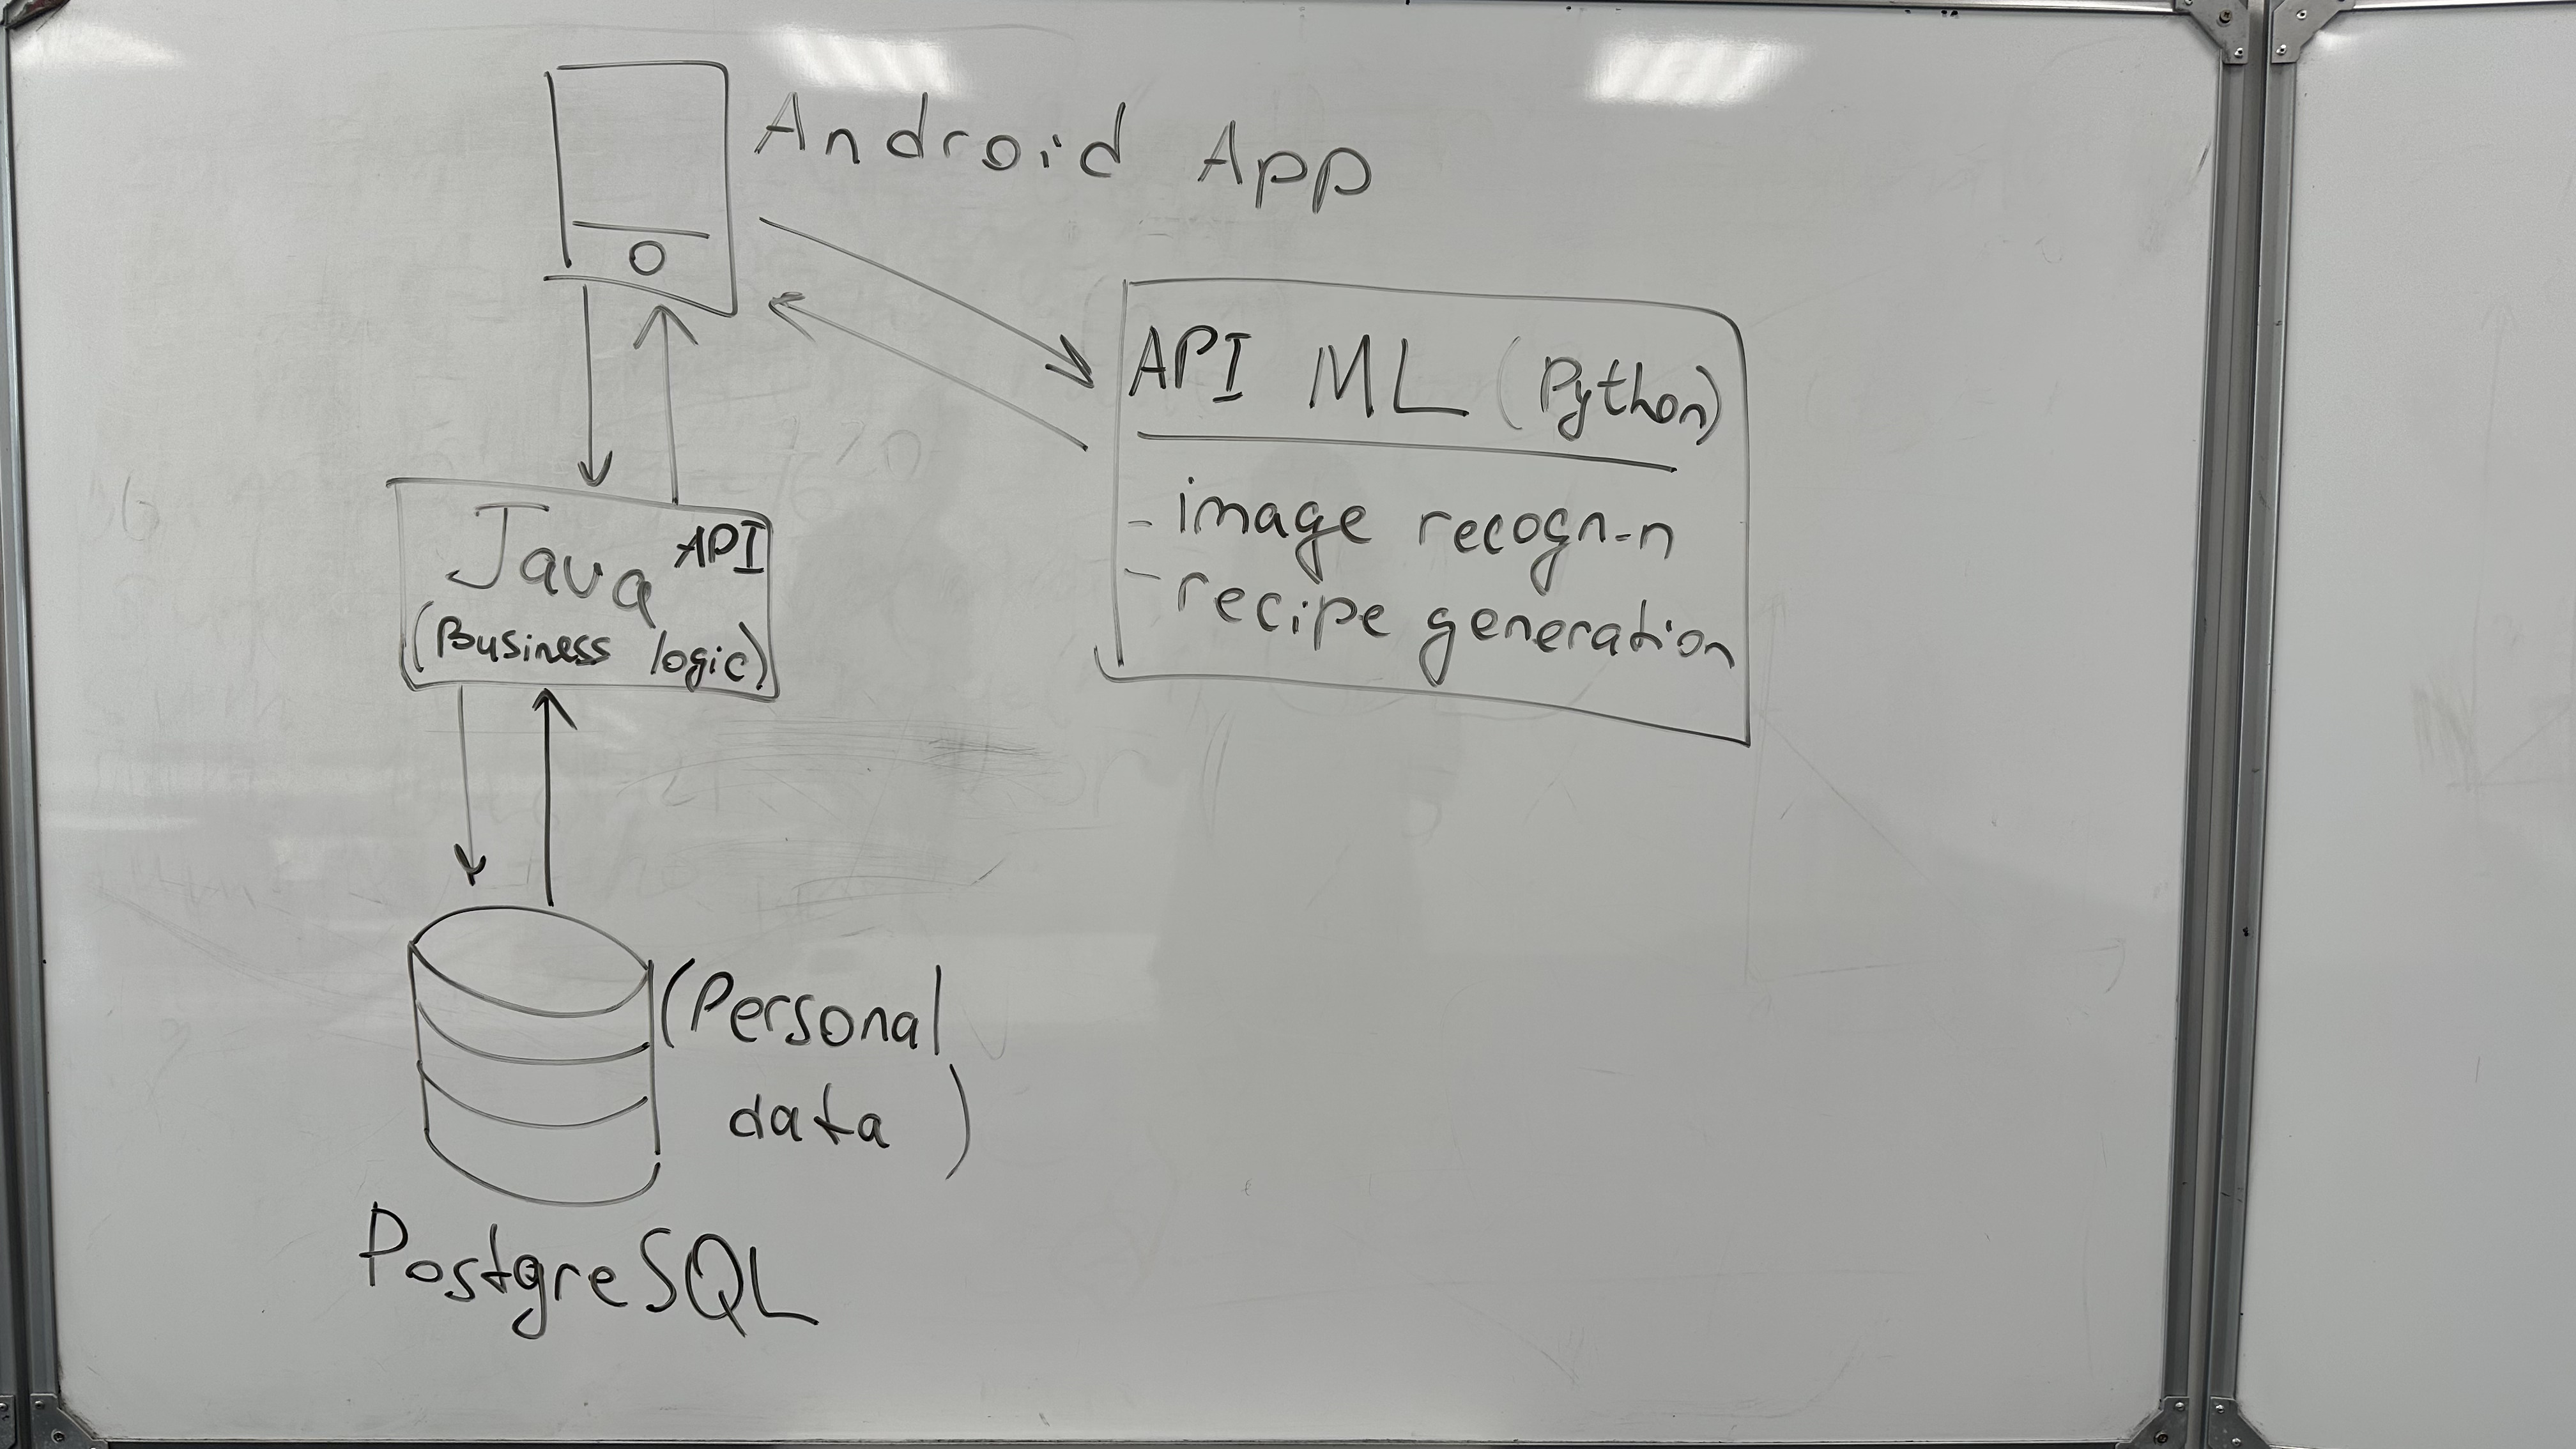 Android App
API ML (Python)
- image recogn-n
- recipe generation
Java API
(Business logic)
(Personal
data)
PostgreSQL